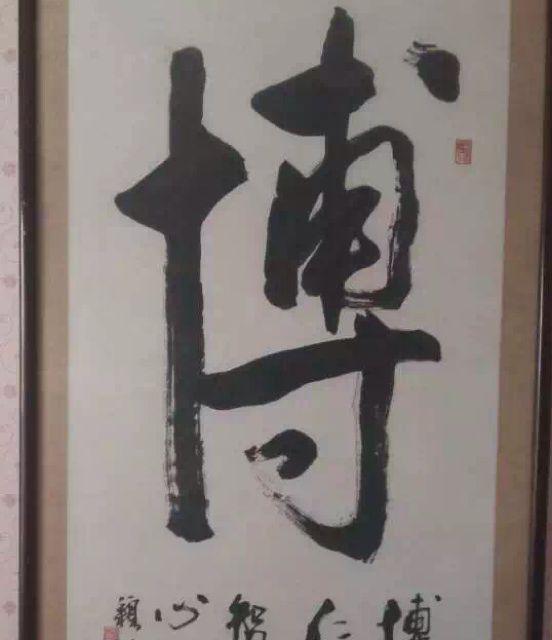 博
博
仁
智
心